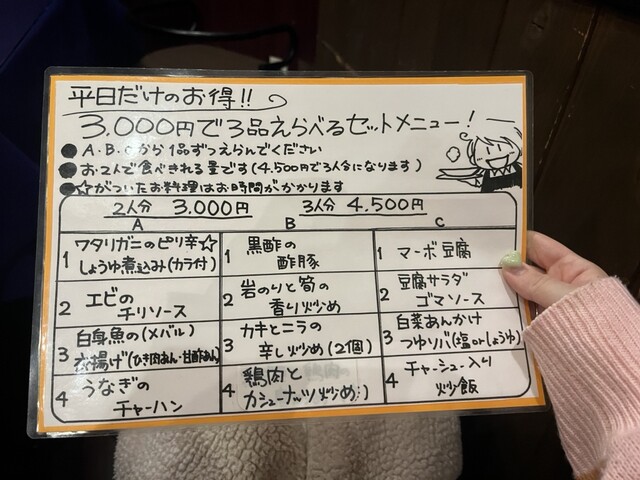 平日だけのお得!!
3,000円で3品えらべるセットメニュー!
●A・B・Cから1品ずつえらんでください
●お2人で食べきれる量です(4,500円で3人分になります)
●☆がついたお料理はお時間がかかります
2人分 3,000円 3人分 4,500円
A B C
1 ワタリガニのピリ辛☆
しょうゆ煮込み(カラ付)
2 エビの
チリソース
3 白身魚の(メバル)
衣揚げ(ひき肉あん・甘酢あん)
4 うなぎの
チャーハン
1 黒酢の
酢豚
2 岩のりと筍の
香り炒め
3 カキとニラの
辛し炒め(2個)
4 鶏肉と
カシューナッツ炒め
1 マーボ豆腐
2 豆腐サラダ
ゴマソース
3 白菜あんかけ
つゆソバ(塩orしょうゆ)
4 チャーシュー入り
炒飯